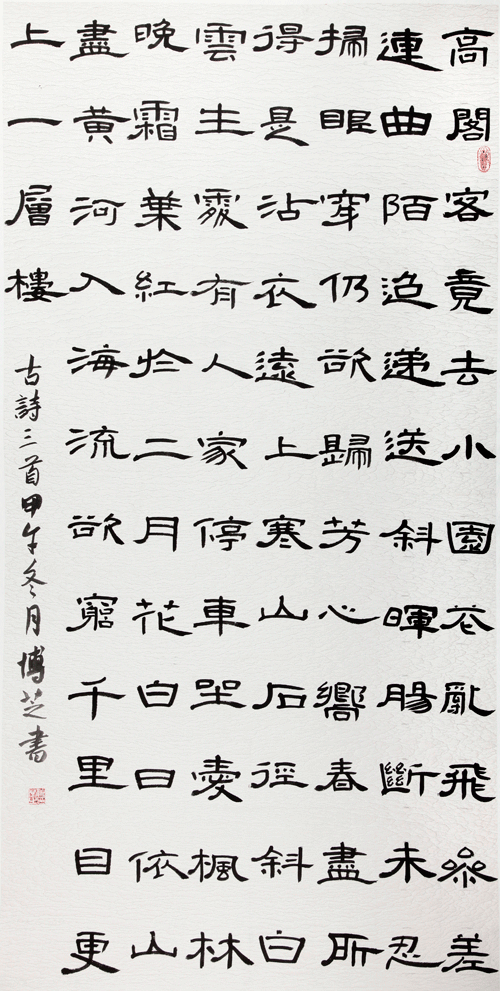 高閣客竟去小園花亂飛參差
連曲陌迢遞送斜暉腸斷未忍
掃眼穿仍欲歸芳心嚮春盡所
得是沾衣遠上寒山石徑斜白
雲生處有人家停車坐愛楓林
晚霜葉紅於二月花白日依山
盡黃河入海流欲窮千里目更
上一層樓
古詩三首甲午冬月博芝書